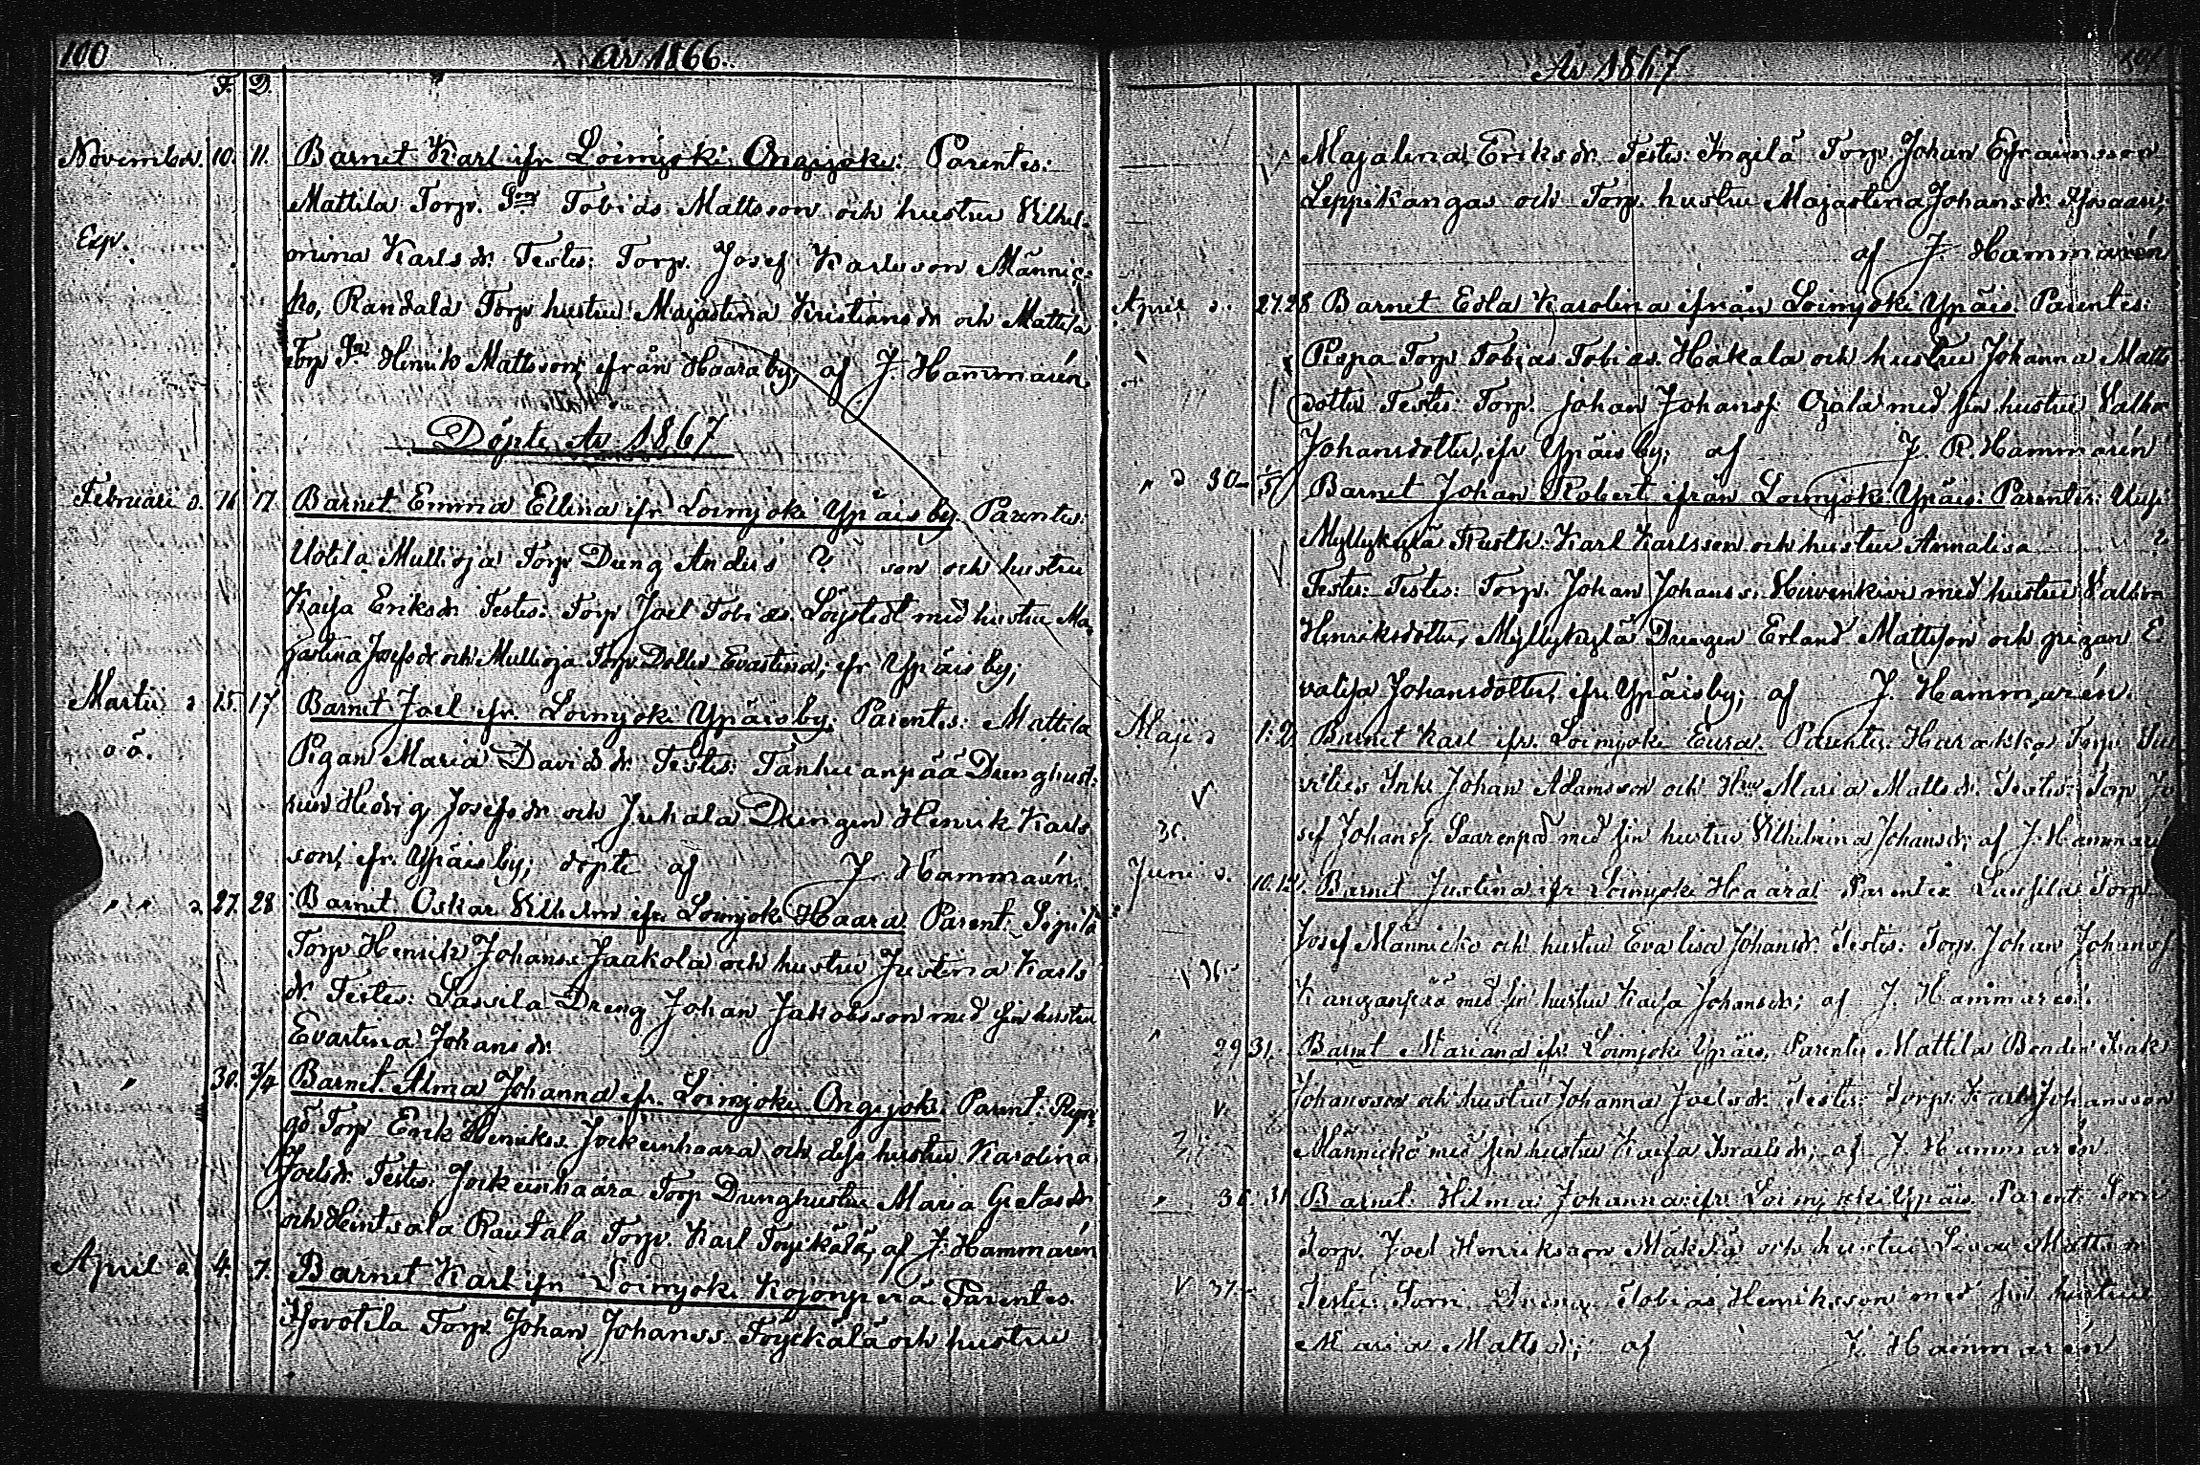 100 År 1866.
F. D.
November 10. 11. Barnet Karl ifr Loimijoki Ongijoki: Parentes:
Mattila Torp. Son Tobias Mattsson och hustru Vilhel-
Exp. mina Karlsdr. Testes: Torp. Josef Karlsson Männic-
ko, Randala Torp hustru Majastina Kristiansdr och Mattila
Torp Sn Henrik Mattsson, ifrån Haara by, af J. Hammarén
Döpte År 1867
Februari d. 16 17 Barnet Emma Ellina ifr Loimijoki Ypäis by. Parentes:
Uotila Mullioja Torp Dreng Anders ? son och hustru
Kajsa Eriksdr. Testes: Torp Joel Tobias. Löfstedt med hustru Ma-
jastina Josefsdr och Mullioja Torp Dotter Evastina, ifr Ypäis by;
Martii d 15. 17 Barnet Joel ifr. Loimijoki Ypäis by. Parentes: Mattila
o ä. Pigan Maria Davidsdr. Testes: Tanhuanpää Drenghust-
run Hedvig Josefsdr och Juhala Drengen Henrik Karls
son, ifr. Ypäis by; döpte af J. Hammarén.
" " d. 27. 28 Barnet Oskar Vilhelm ifr. Loimijoki Haara. Parent: Sipilä
Torp Henrik Johanss. Jaakola och hustru Justina Karls
dr. Testes: Lassila Dreng Johan Jakobsson med sin hustru
Evastina Johansdr.
" 30. 3/4 Barnet Alma Johanna ifr. Loimijoki Ongijoki Parent:
Torp Erik Henrikss. Jokeinhaara och dess hustru Karolina
Joelsdr. Testes: Jokeinhaara Torp Drenghustru Maria Gretasdr
och Hintsala Rautala Torp. Karl Töyckälä; af J. Hammarén
April d. 4. 7. Barnet Karl ifr Loimijoki Kojonperä. Parentes.
Torp. Johan Johanss. Töyckälä och hustru
År 1867 101
Majalena Eriksdr. Testes: Ingilä Torp. Johan Efraimsson
Leppikangas och Torp. hustru Majastina Johansdr.
af J. Hammarén
April d. 27. 28 Barnet Edla Karolina ifrån Loimijoki Ypäis. Parentes:
Pispa Torp Tobias Tobias. Hakala och hustru Johanna Matts
dotter Testes: Torp. Johan Johanss. Ojala med sin hustru Valbor
Johansdotter, ifr Ypäis by; af J. R. Hammarén
" d 30 1/5 Barnet Johan Robert ifrån Loimijoki Ypäis: Parentes:
Myllykylä Rusth. Karl Karlsson och hustru Annalisa ?
Testes: Testes: Torp. Johan Johanss. Hirvenkivi med hustru Valbor
Henriksdotter, Myllykylä Drengen Erland Mattsson och pigan E
valisa Johansdotter, ifr. Ypäis by; af J. Hammarén.
Maji d 1. 2. Barnet Karl ifr. Loimijoki Eura. Parentes: Harakka Torp
Inh. Johan Adamsson och Hru Maria Mattsdr. Testes: Torp Jo
sef Johanss. Saarenpä med sin hustru Vilhelmina Johansdr; af J. Hammarén
Juni d. 10. 12. Barnet Justina ifr Loimijoki Haara Parentes Torp.
Josef Männickö och hustru Evalisa Johansdr. Testes: Torp. Johan Johanss
Kanganpää med sin hustru Kajsa Johansdr; af J. Hammarén.
" 29 31. Barnet Mariana ifr. Loimijoki Ypäis. Parentes Mattila Bonden Isak
Johansson och hustru Johanna Joelsdr. Testes: Torp. Karl Johansson
Männickö med sin hustru Kajsa Israelsdr; af J. Hammarén.
" 31. Barnet Hilma Johanna ifr Loimijoki Ypäis. Parent:
Torp. Joel Henriksson Mäkilä och hustru Lovisa Mattsdr
Testes: Dreng Tobias Henriksson med sin hustru
Maria Mattsdr; af J. Hammarén